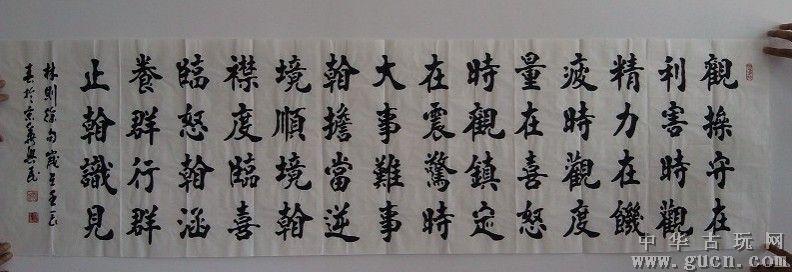 觀操守在
利害時觀
精力在饑
疲時觀度
量在喜怒
時觀鎮定
在震驚時
大事難事
看擔當逆
境順境看
襟度臨喜
臨怒看涵
養群行群
止看識見
林則徐句歲
於京華
中华古玩网
www.gucn.com